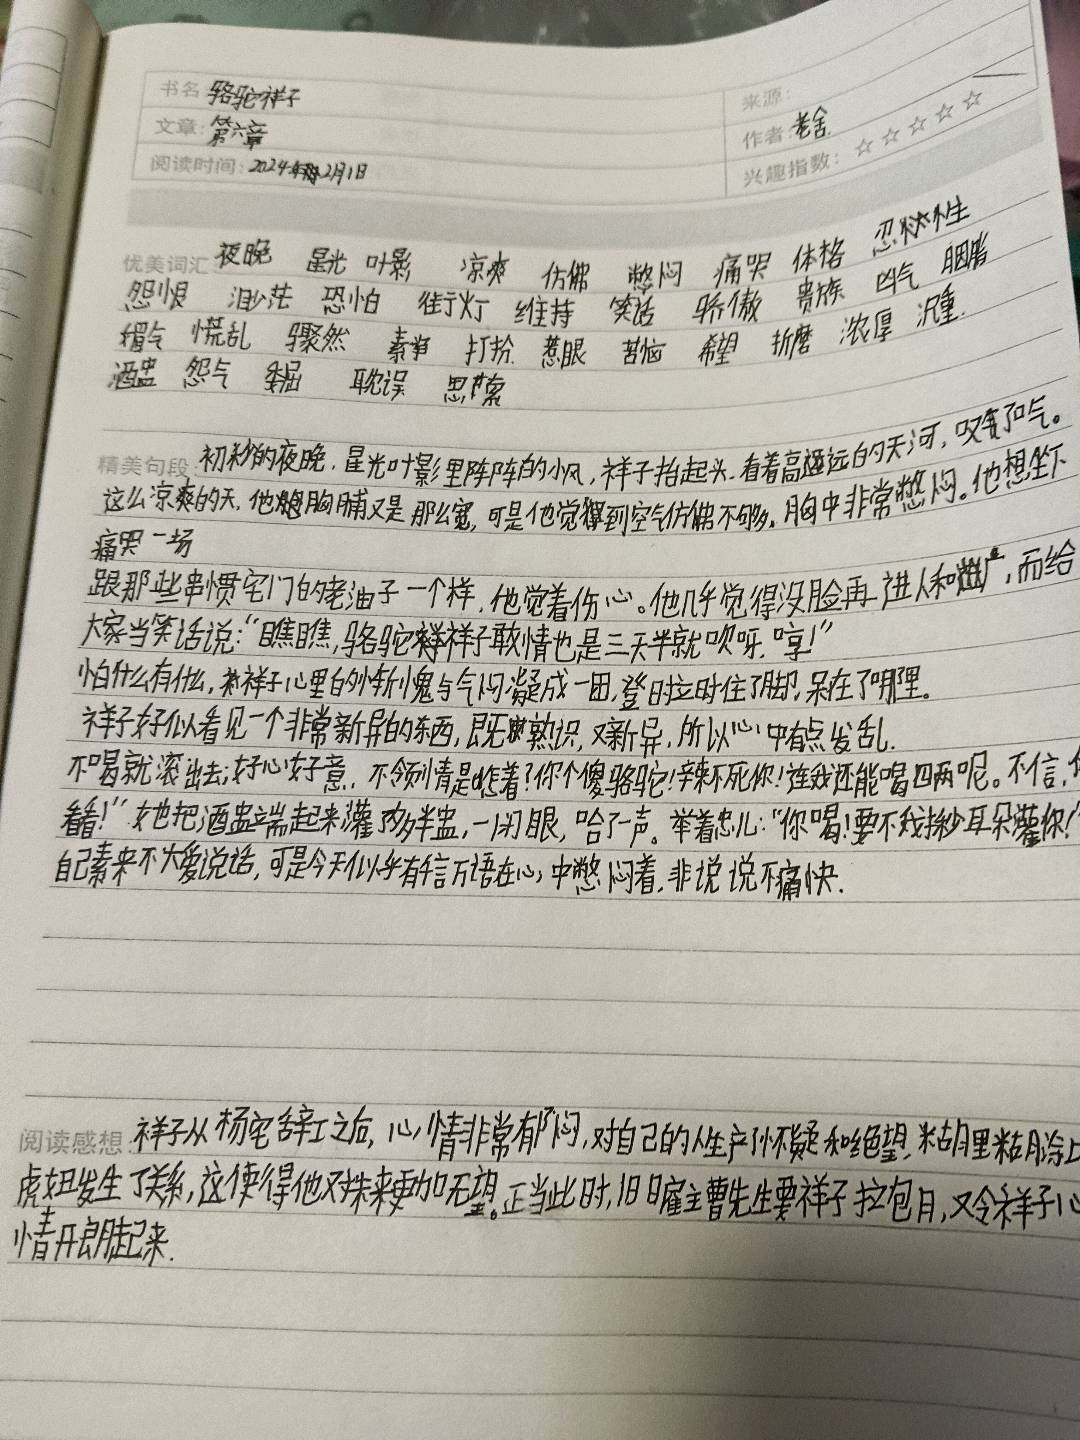 书名：骆驼祥子
来源：
文章：第六章
作者：老舍
阅读时间：2024年2月1日
兴趣指数：☆☆☆☆☆
优美词汇：夜晚 星光 叶影 凉爽 仿佛 憋闷 痛哭 体格 忍耐性
怨恨 渺茫 恐怕 街灯 维持 笑话 骄傲 贵族 凶气 胭脂
媚气 慌乱 骤然 素净 打扮 惹眼 苦恼 希望 折磨 浓厚 沉重.
酒盅 怨气 委屈 耽误 思索
精美句段：初秋的夜晚，星光叶影里阵阵的小风，祥子抬起头，看着高远的天河，叹了口气。
这么凉爽的天，他的胸脯又是那么宽，可是他觉到空气仿佛不够，胸中非常憋闷。他想坐下
痛哭一场
跟那些串惯宅门的老油子一个样，他觉着伤心。他几乎觉得没脸再进人和厂，而给
大家当笑话说：“瞧瞧，骆驼祥子敢情也是三天半就吹呀，哼！”
怕什么有什么，祥子心里的惭愧与气闷凝成一团，登时立时住了脚，呆在了哪里。
祥子好似看见一个非常新异的东西，既熟识，又新异，所以心中有点发乱.
不喝就滚出去；好心好意，不领情是咋着？你个傻骆驼！辣不死你！连我还能喝四两呢。不信，你
看看！”她把酒盅端起来灌了多半盅，一闭眼，哈了一声。举着盅儿：“你喝！要不我揪耳朵灌你！”
自己素来不大爱说话，可是今天似乎有千言万语在心中憋闷着，非说说不痛快.
阅读感想：祥子从杨宅辞工之后，心情非常郁闷，对自己的人生产生怀疑和绝望，糊里糊涂
虎妞发生了关系，这使得他对未来更加无望。正当此时，旧日雇主曹先生要祥子拉包月，又令祥子心
情开朗起来.